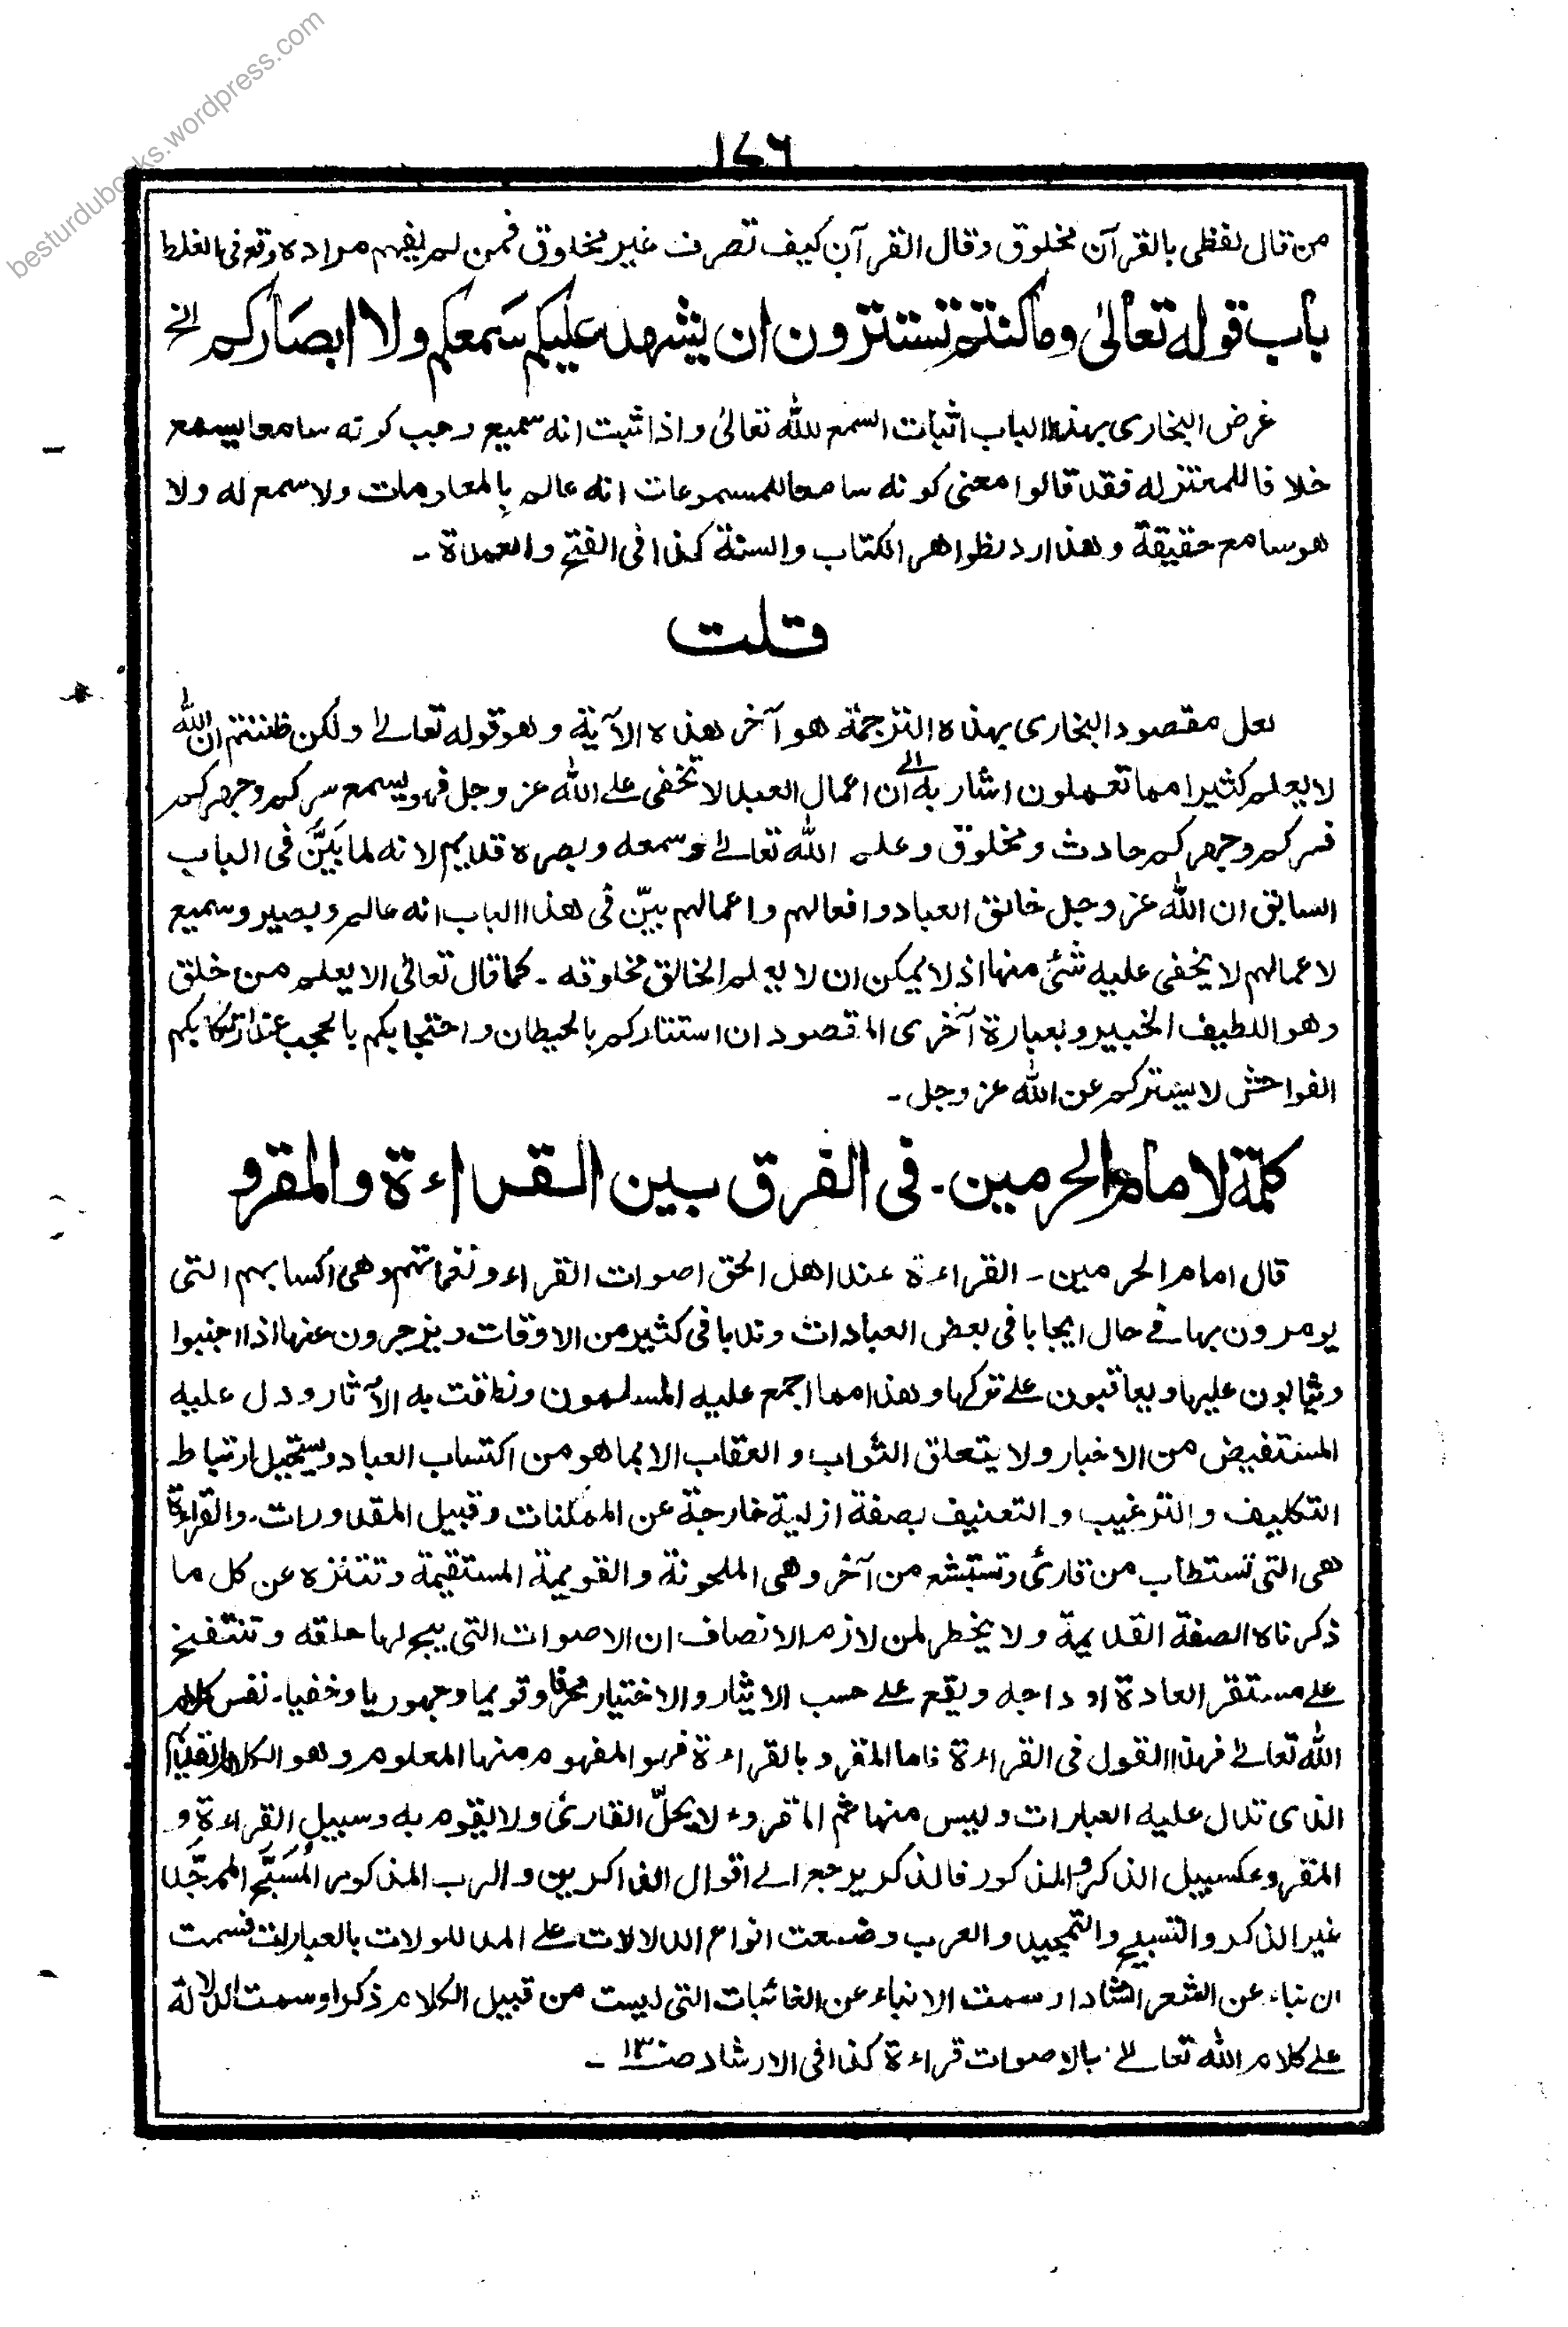 besturdubooks.wordpress.com
١٧٦
من قال لفظى بالقرآن مخلوق وقال القرآن كيف تصرف غير مخلوق فمن لم يفهم مراده وقع فى الغلط
باب قوله تعالىٰ وما كنتم تستترون ان يشهد عليكم سمعكم ولا ابصاركم الخ
غرض البخارى بهذا الباب اثبات السمع لله تعالىٰ واذا ثبت انه سميع وجب كونه سامعا يسمع
خلافا للمعتزلة فقد قالوا معنى كونه سامعا للمسموعات انه عالم بالمعلومات ولا سمع له ولا
هو سامع حقيقة وهذا رد لظواهر الكتاب والسنة كذا فى الفتح والعمدة ـ
قلت
لعل مقصود البخارى بهذه الترجمة هو آخر هذه الآية وهو قوله تعالے ولكن ظننتم ان الله
لا يعلم كثيرا مما تعملون اشار به الے ان اعمال العبد لا تخفى علے الله عز وجل فهو يسمع سركم وجهركم
فسركم وجهركم حادث ومخلوق وعلم الله تعالے وسمعه وبصره قديم لانه لما بَيَّن فى الباب
السابق ان الله عز وجل خالق العباد وافعالهم واعمالهم بيّن فى هذا الباب انه عالم وبصير وسميع
لاعمالهم لا يخفى عليه شئ منها اذ لا يمكن ان لا يعلم الخالق مخلوقه ـ كما قال تعالى الا يعلم من خلق
وهو اللطيف الخبير وبعبارة آخرى المقصود ان استتاركم بالحيطان واحتجابكم بالحجب عند ارتكابكم
الفواحش لا يستركم عن الله عز وجل ـ
كلمة لامام الحرمين ـ فى الفرق بين القراءة والمقرو
قال امام الحرمين ـ القراءة عند اهل الحق اصوات القراء ونغماتهم وهى اكسابهم التى
يومرون بها فے حال ايجابا فى بعض العبادات وندبا فى كثير من الاوقات ويزجرون عنها اذا اجنبوا
ويثابون عليها ويعاقبون علے تركها وهذا مما اجمع عليه المسلمون ونطقت به الآثار ودل عليه
المستفيض من الاخبار ولا يتعلق الثواب والعقاب الا بما هو من اكتساب العباد ويستحيل ارتباط
التكليف والترغيب والتعنيف بصفة ازلية خارجة عن الممكنات وقبيل المقدورات ـ والقراءة
هى التى تستطاب من قارئ وتستبشع من آخر وهى الملحونة والقويمة المستقيمة وتتنزه عن كل ما
ذكرناه الصفة القديمة ولا يخطر لمن لازم الانصاف ان الاصوات التى يبح لها حلقه وتنتفخ
علے مستقر العادة اوداجه ويقع علے حسب الايثار والاختيار محرفا وقويما وجهوريا وخفيا ـ نفس كلام
الله تعالے فهذا القول فى القراءة فاما المقرو بالقراءة فهو المفهوم منها المعلوم وهو الكلام القديم
الذى تدل عليه العبارات وليس منها ثم المقروء لا يحلّ القارئ ولا يقوم به وسبيل القراءة و
المقرو كسبيل الذكر والمذكور فالذكر يرجع الے اقوال الذاكرين والرب المذكور المُسَبَّح الممجَّد
غير الذكر والتسبيح والتمجيد والعرب وضعت انواع الدلالات علے المدلولات بالعبارات فسمت
الانباء عن الشعر انشادا وسمت الانباء عن الغائبات التى ليست من قبيل الكلام ذكرا وسمت الدلالة
علے كلام الله تعالے بالاصوات قراءة كذا فى الارشاد صـ١٣٠ ـ